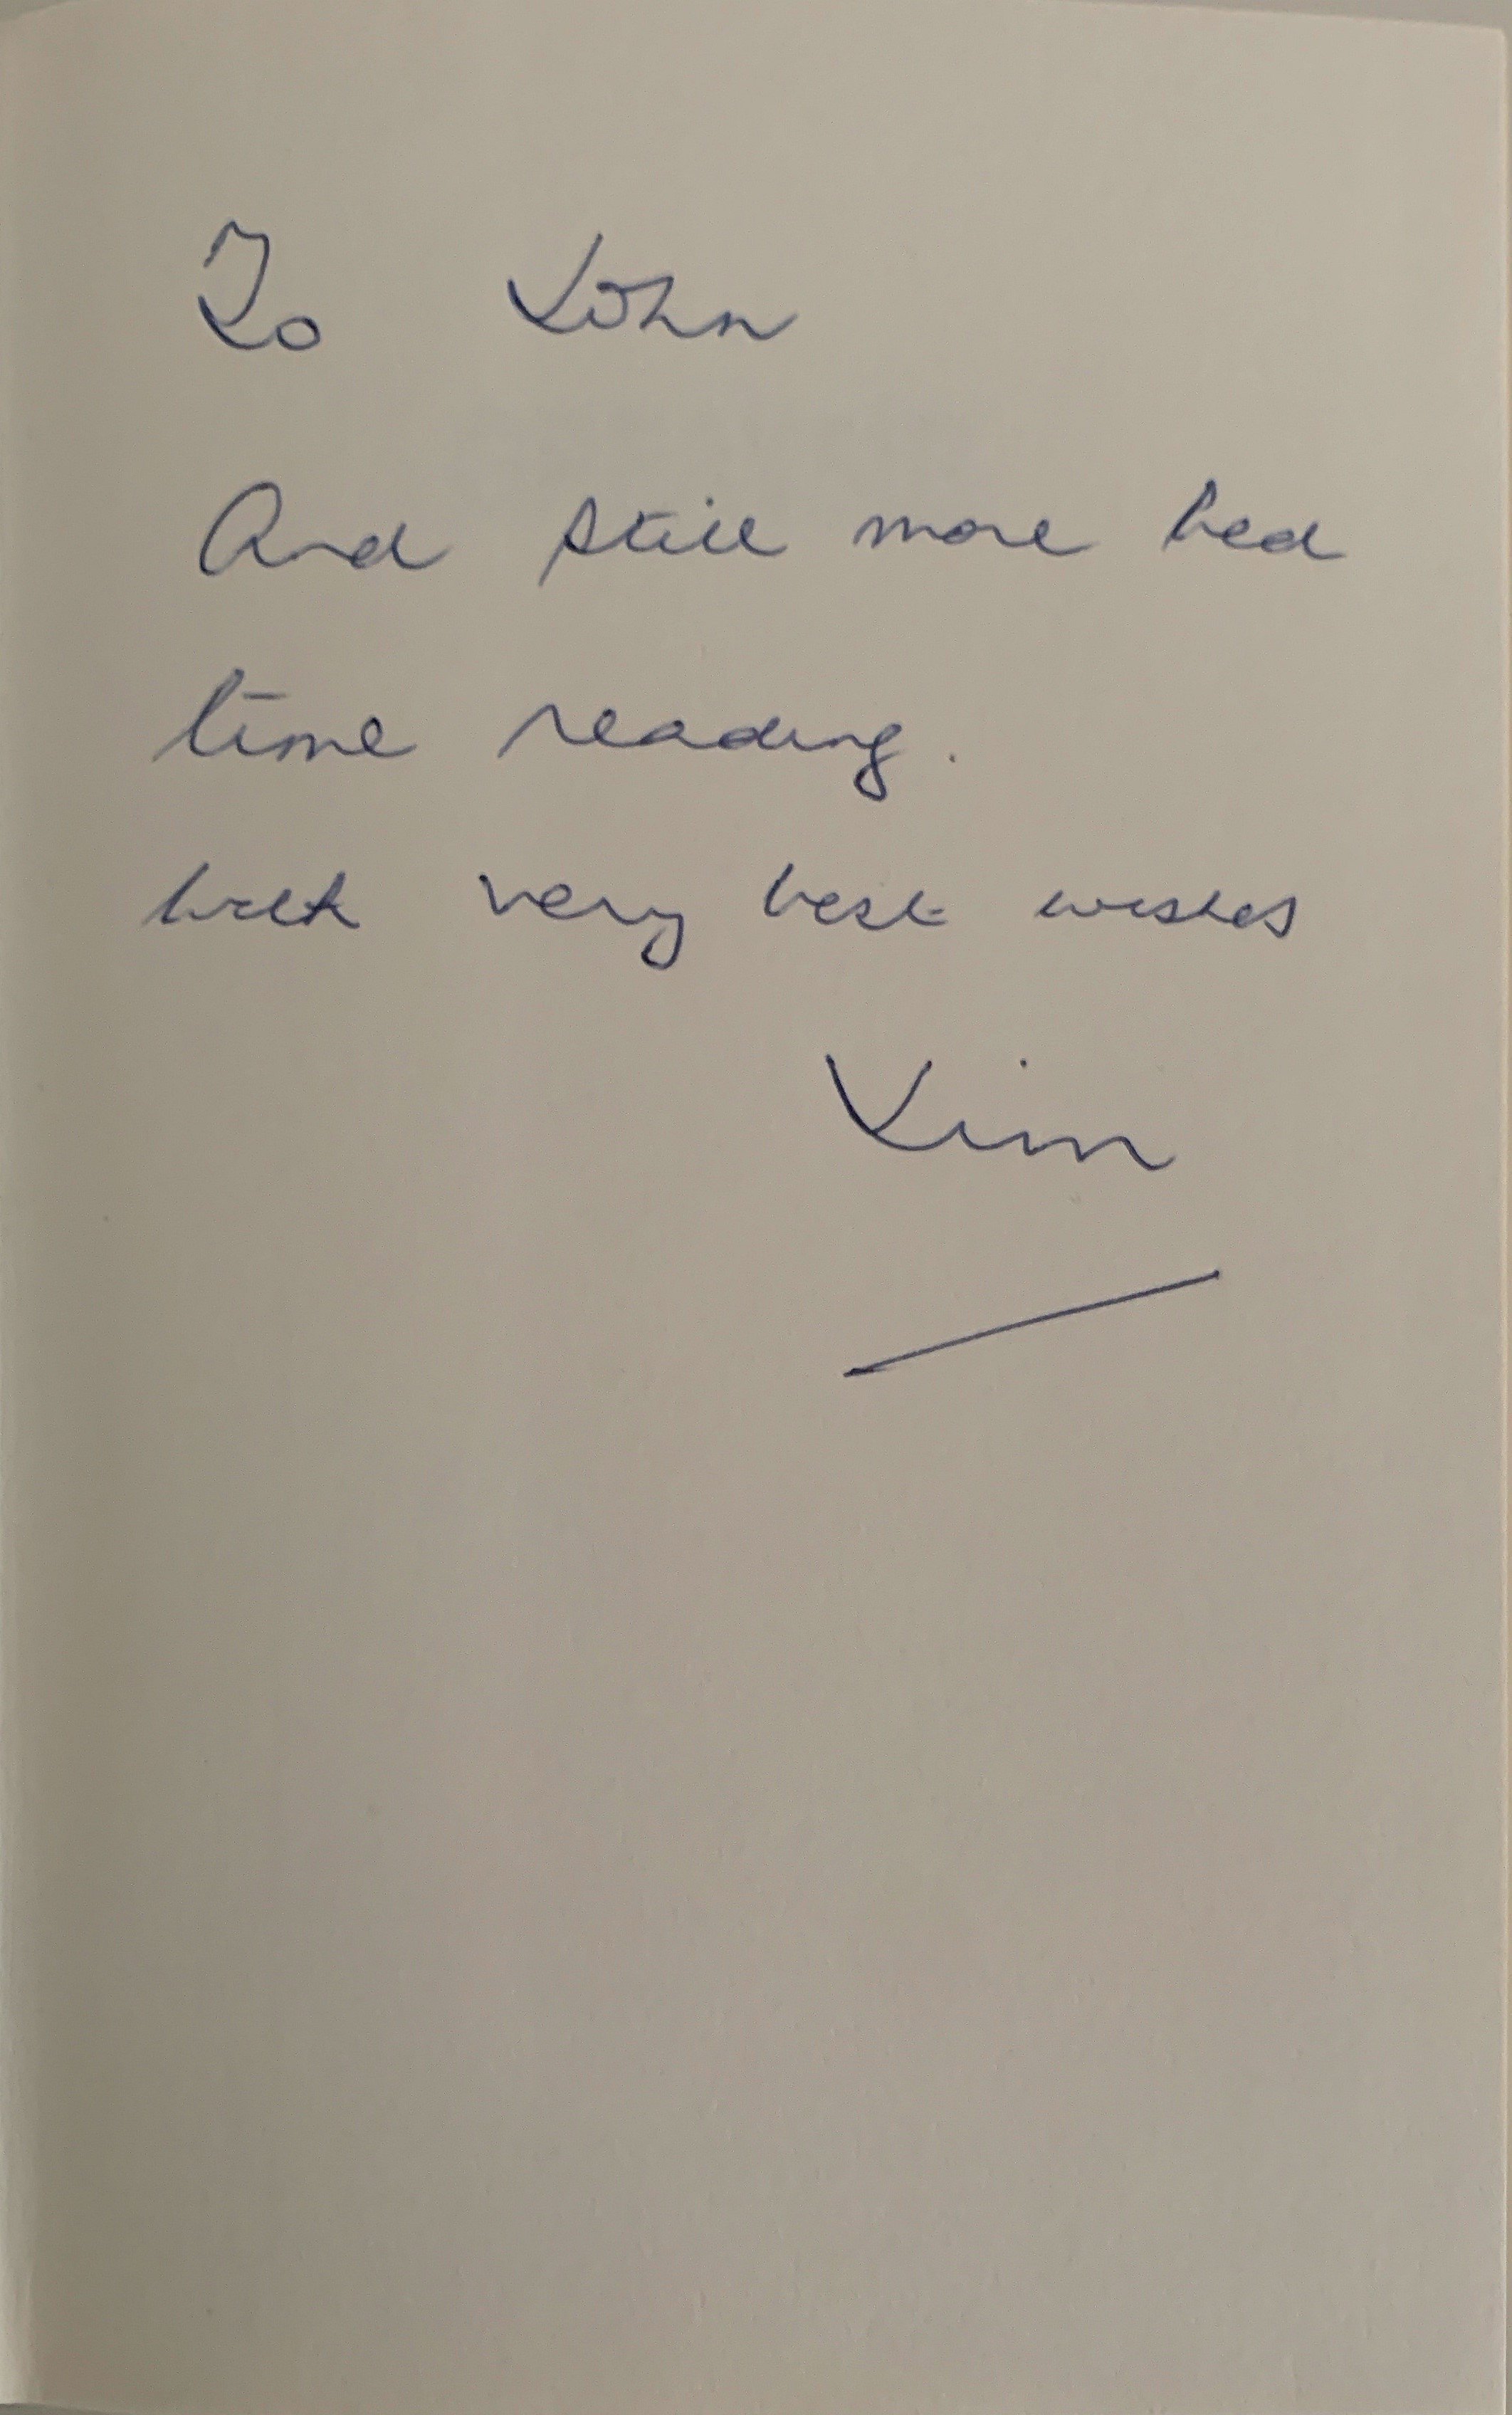 To John
And still more bed
time reading.
With very best wishes
Jim